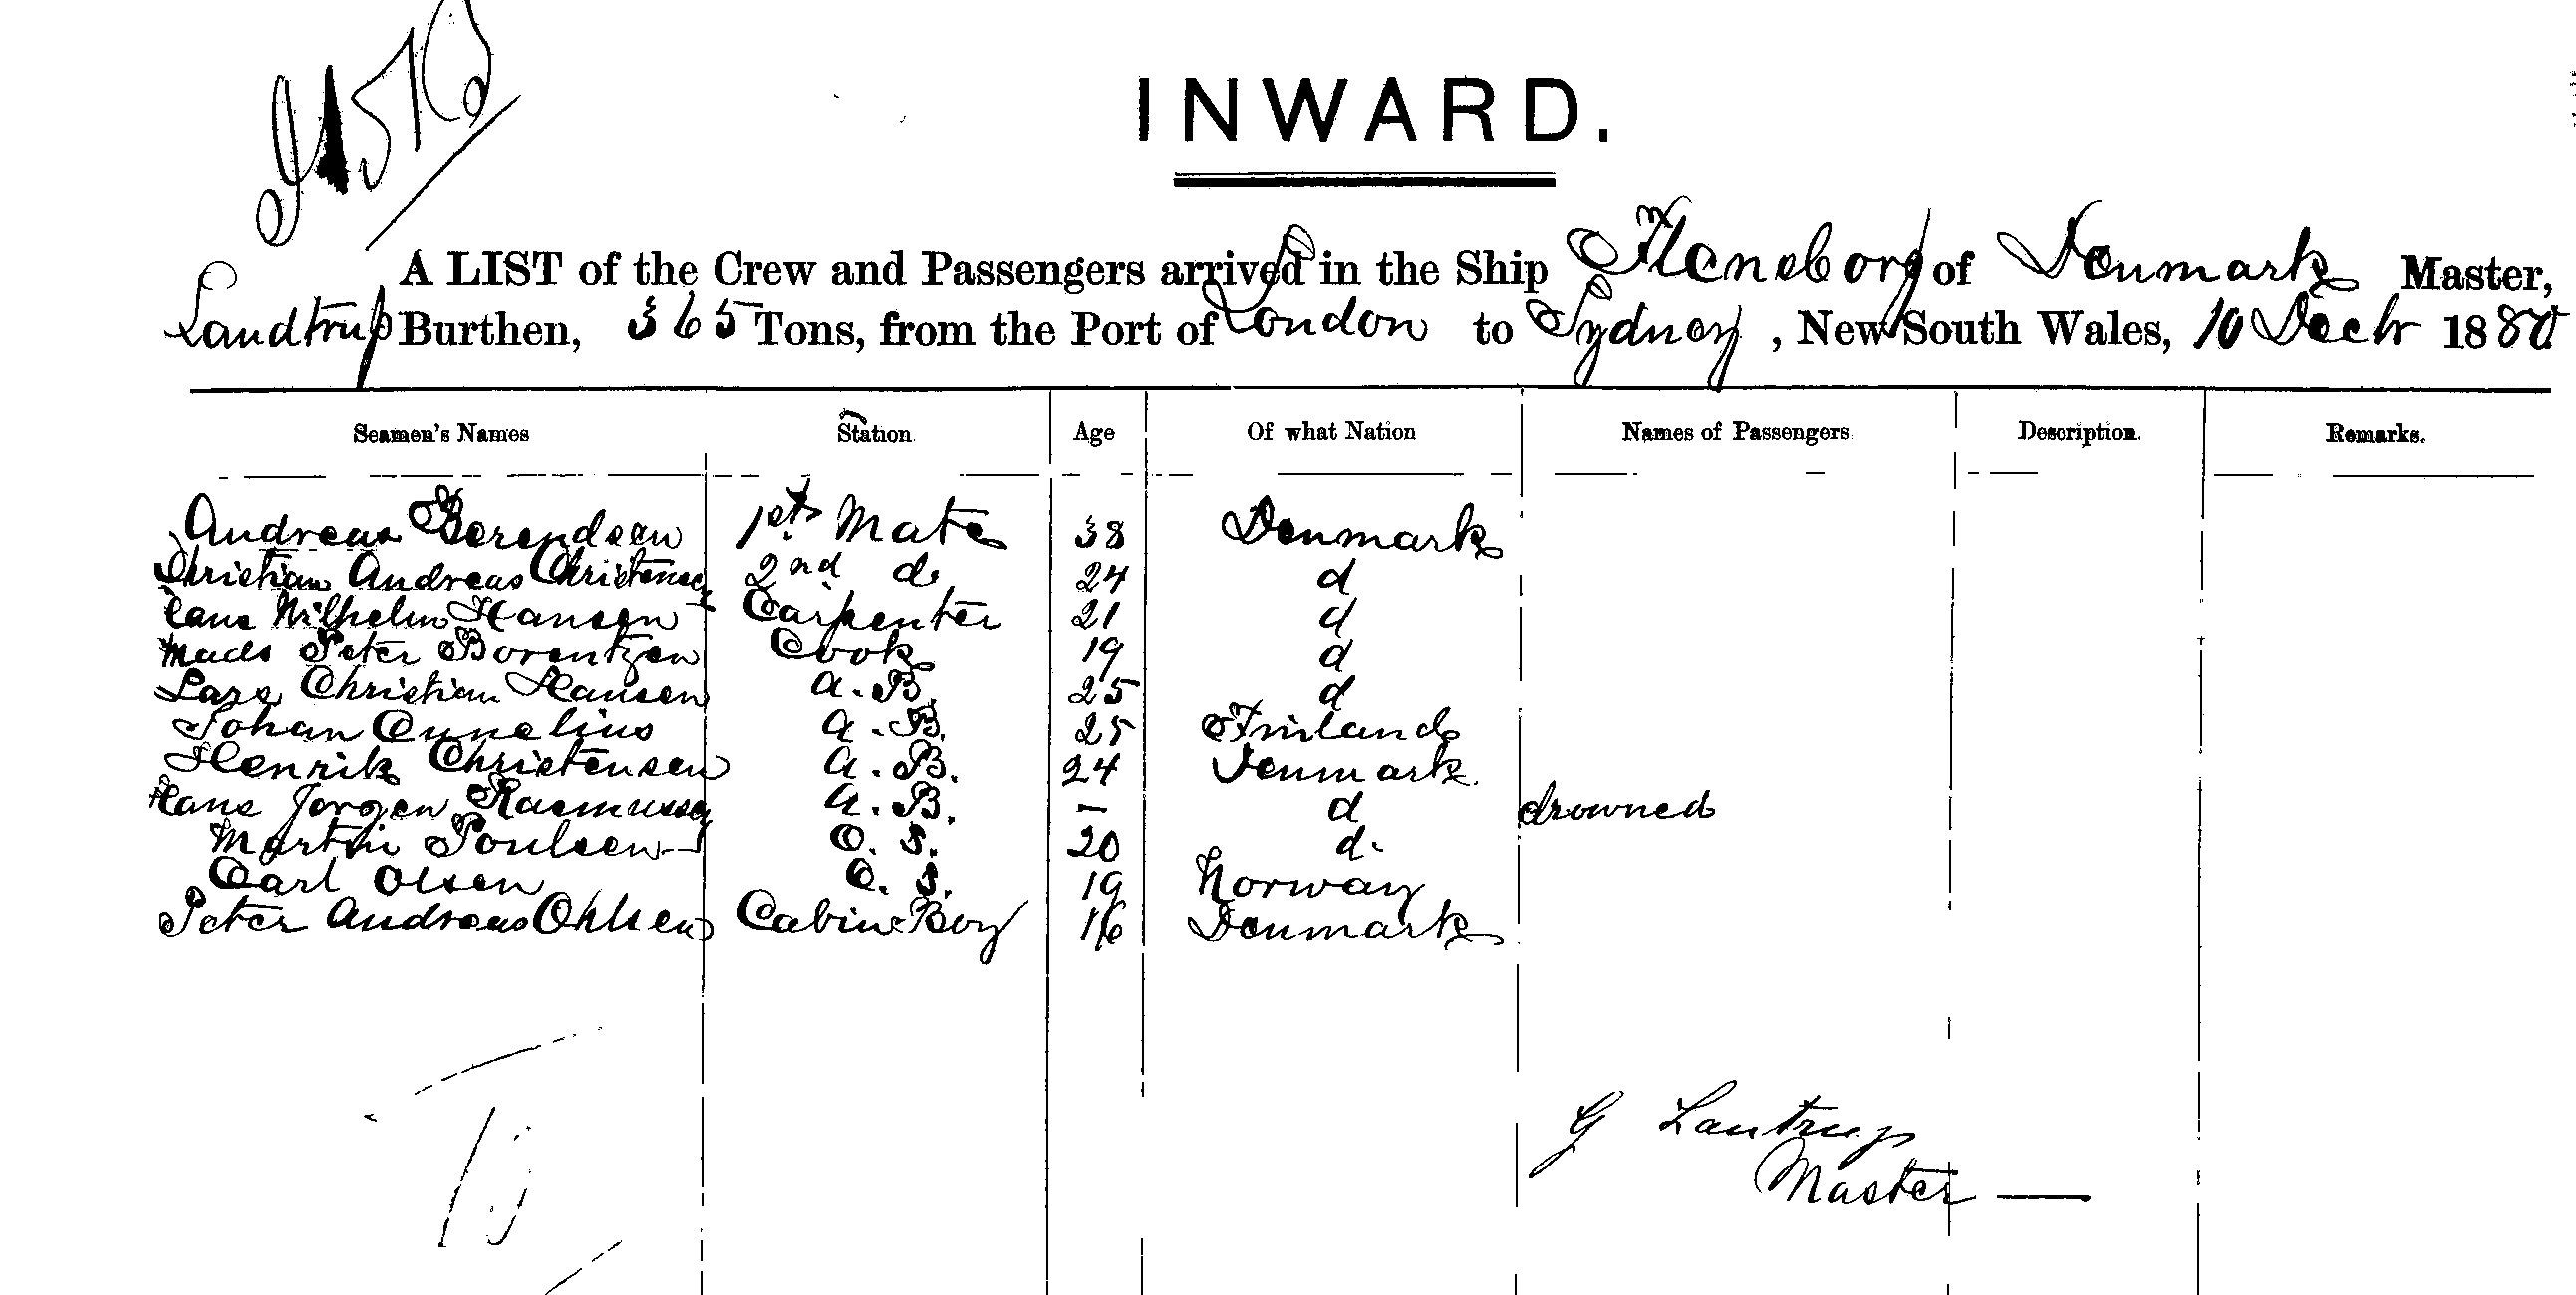 INWARD.
A LIST of the Crew and Passengers arrived in the Ship Flensborg of Denmark Master,
Landtrup Burthen, 365 Tons, from the Port of London to Sydney, New South Wales, 10 Decbr 1880
Seamen's Names Station Age Of what Nation Names of Passengers. Description. Remarks.
Andreas Berendsen 1st Mate 38 Denmark
Christian Andreas Christensen 2nd do 24 d
Hans Wilhelm Hansen Carpenter 21 d
Mads Peter Borentzen Cook 19 d
Lars Christian Hansen A.B. 25 d
Johan Cunnelius A.B. 25 Finland
Henrik Christensen A.B. 24 Denmark
Hans Jorgen Rasmussen A.B. — d drowned
Martin Poulsen O.S. 20 d.
Carl Olsen O.S. 19 Norway
Peter Andreas Ohlsen Cabin Boy 16 Denmark
G Lautrup
Master —